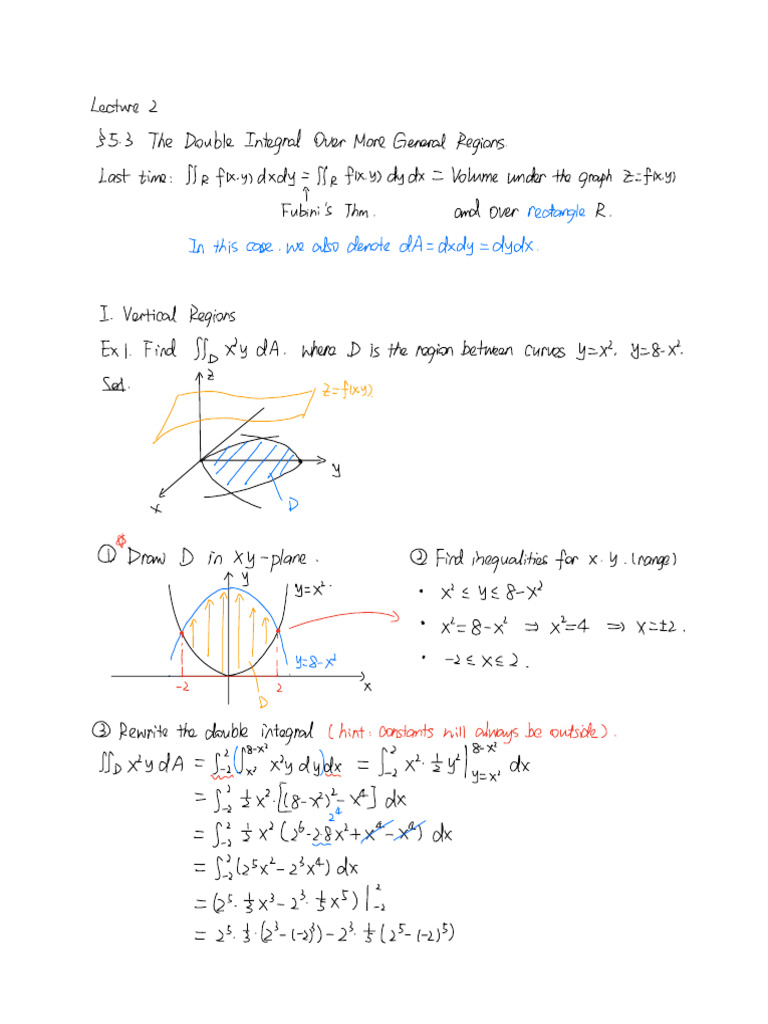 Lecture 2
§5.3 The Double Integral Over More General Regions.
Last time: ∬_R f(x,y) dxdy = ∬_R f(x,y) dydx = Volume under the graph z=f(x,y)
↑
Fubini's Thm. and over rectangle R.
In this case, we also denote dA = dxdy = dydx.
I. Vertical Regions
Ex 1. Find ∬_D x²y dA. where D is the region between curves y=x², y=8-x².
Sol.
z
z=f(x,y)
y
x
D
① Draw D in xy-plane. ② Find inequalities for x.y.(range)
y
y=x².
y=8-x²
-2 2 x
D
• x² ≤ y ≤ 8-x²
• x²=8-x² ⇒ x²=4 ⇒ x=±2.
• -2 ≤ x ≤ 2.
③ Rewrite the double integral (hint: constants will always be outside).
∬_D x²y dA = ∫_{-2}^{2} (∫_{x²}^{8-x²} x²y dy) dx = ∫_{-2}^{2} x² · ½ y² |_{y=x²}^{8-x²} dx
= ∫_{-2}^{2} ½ x² · [(8-x²)² - x⁴] dx
2⁴
= ∫_{-2}^{2} ½ x² (2⁶ - 2·8x² + x⁴ - x⁴) dx
= ∫_{-2}^{2} (2⁵x² - 2³x⁴) dx
= (2⁵ · ⅓ x³ - 2³ · ⅕ x⁵) |_{-2}^{2}
= 2⁵ · ⅓ · (2³ - (-2)³) - 2³ · ⅕ (2⁵ - (-2)⁵)